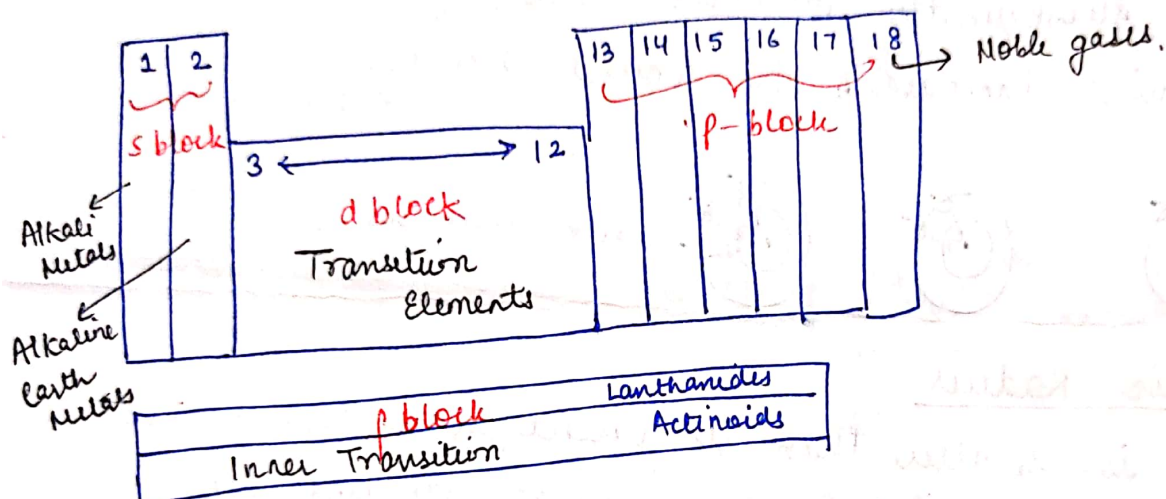 1 2
s block
Alkali
Metals
Alkaline
earth
Metals
3 12
d block
Transition
Elements
13 14 15 16 17 18
Noble gases.
p-block
f block
Lanthanides
Inner Transition
Actinoids